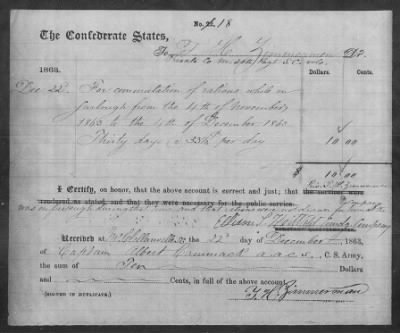 No. 18
The Confederate States,
To T. H. Zimmerman Dr.
Private Co M. 20th Regt S.C. vols.
1863. Dollars. Cents.
Dec 22 For commutation of rations while on
furlough from the 4th of November
1863 to the 4th of December 1863
Thirty days @ 33⅓ per day 10 00
$ 10 00
I Certify, on honor, that the above account is correct and just; that the services
rendered as stated, and that they were necessary for the public service.
was on furlough during the time and that rations were not drawn
Comdg Company
Received at the 22 day of December, 1863,
of Captain a a c s, C. S. Army,
the sum of Ten Dollars
and Cents, in full of the above account.
[SIGNED IN DUPLICATE.] T. H. Zimmerman